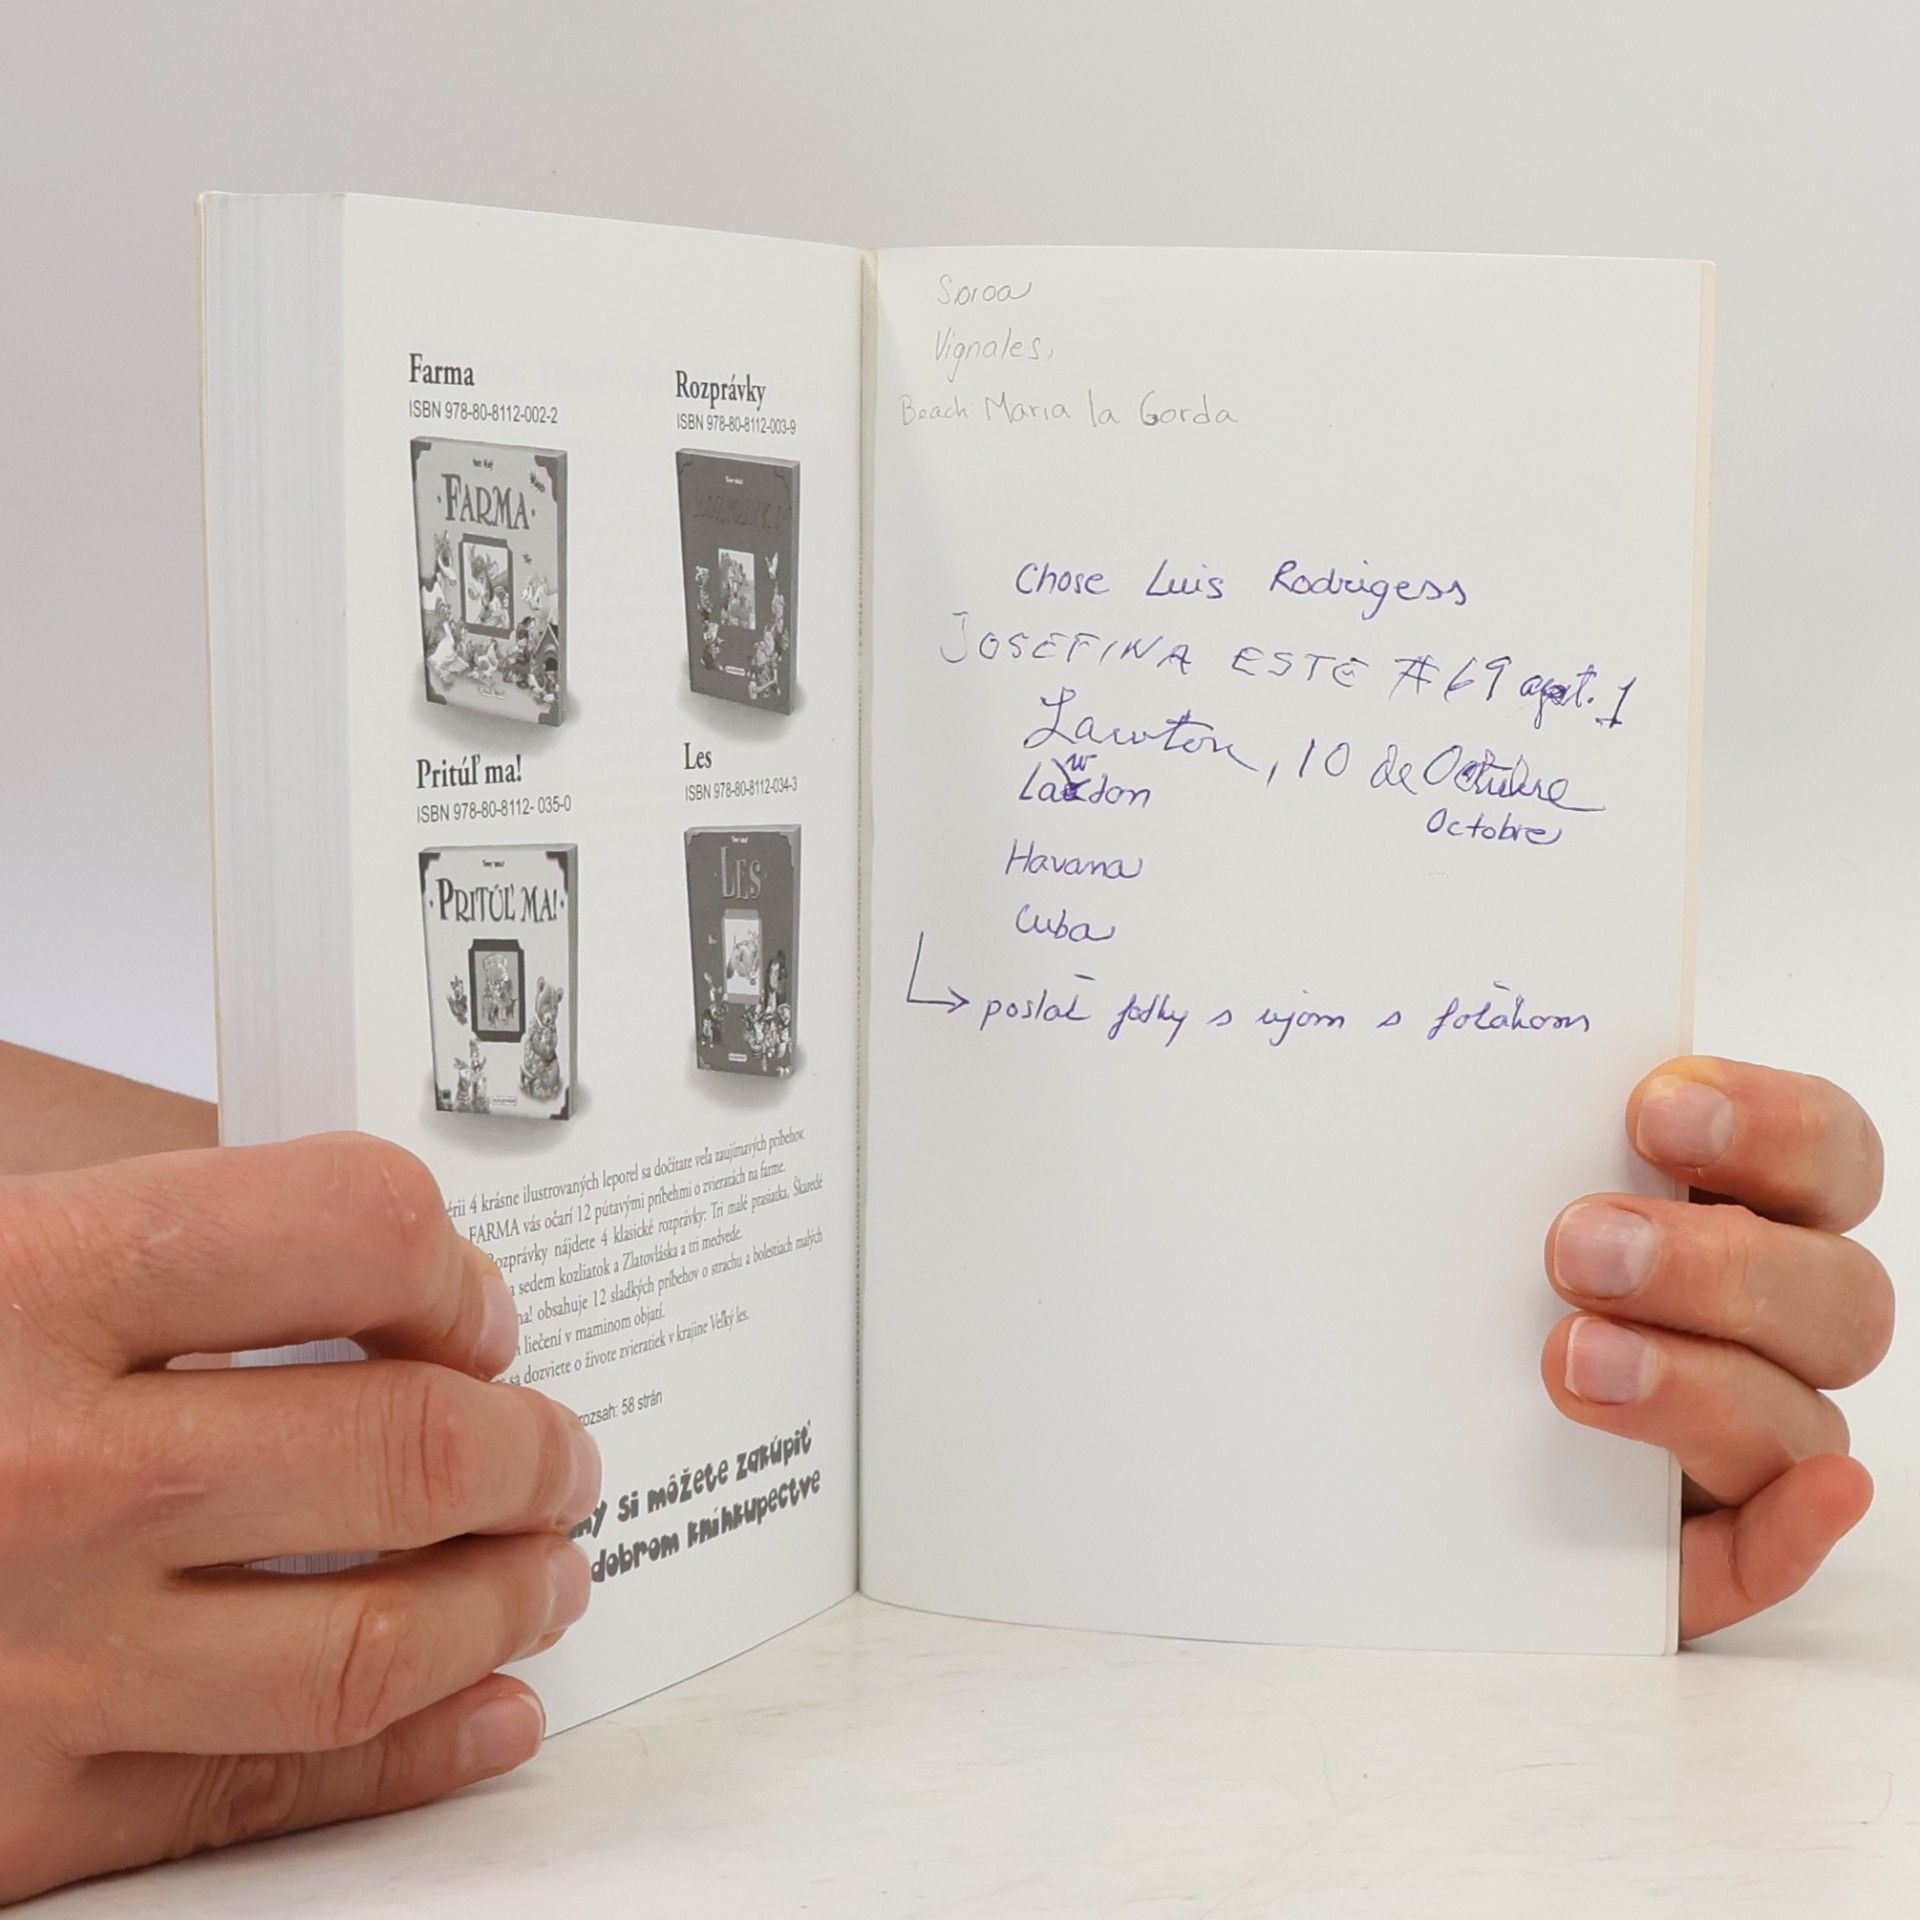 Farma
ISBN 978-80-8112-002-2
FARMA
Rozprávky
ISBN 978-80-8112-003-9
Pritúľ ma!
ISBN 978-80-8112- 035-0
PRITÚĽ MA!
Les
ISBN 978-80-8112-034-3
LES
érii 4 krásne ilustrovaných leporel sa dočítate veľa zaujímavých príbehov.
FARMA vás očarí 12 pútavými príbehmi o zvieratách na farme.
ozprávky nájdete 4 klasické rozprávky: Tri malé prasiatka, Škaredé
a sedem kozliatok a Zlatovláska a tri medvede.
ma! obsahuje 12 sladkých príbehov o strachu a bolestiach malých
liečení v maminom objatí.
sa dozviete o živote zvieratiek v krajine Veľký les.
rozsah: 58 strán
si môžete zakúpiť
dobrom kníhkupectve
Soroa
Vignales,
Beach: Maria la Gorda
Chose Luis Rodrigess
JOSEFINA ESTE # 69 apt. 1
Lawton, 10 de Octubre
Lawdon
Octobre
Havana
Cuba
poslať fotky s ujom s foťákom